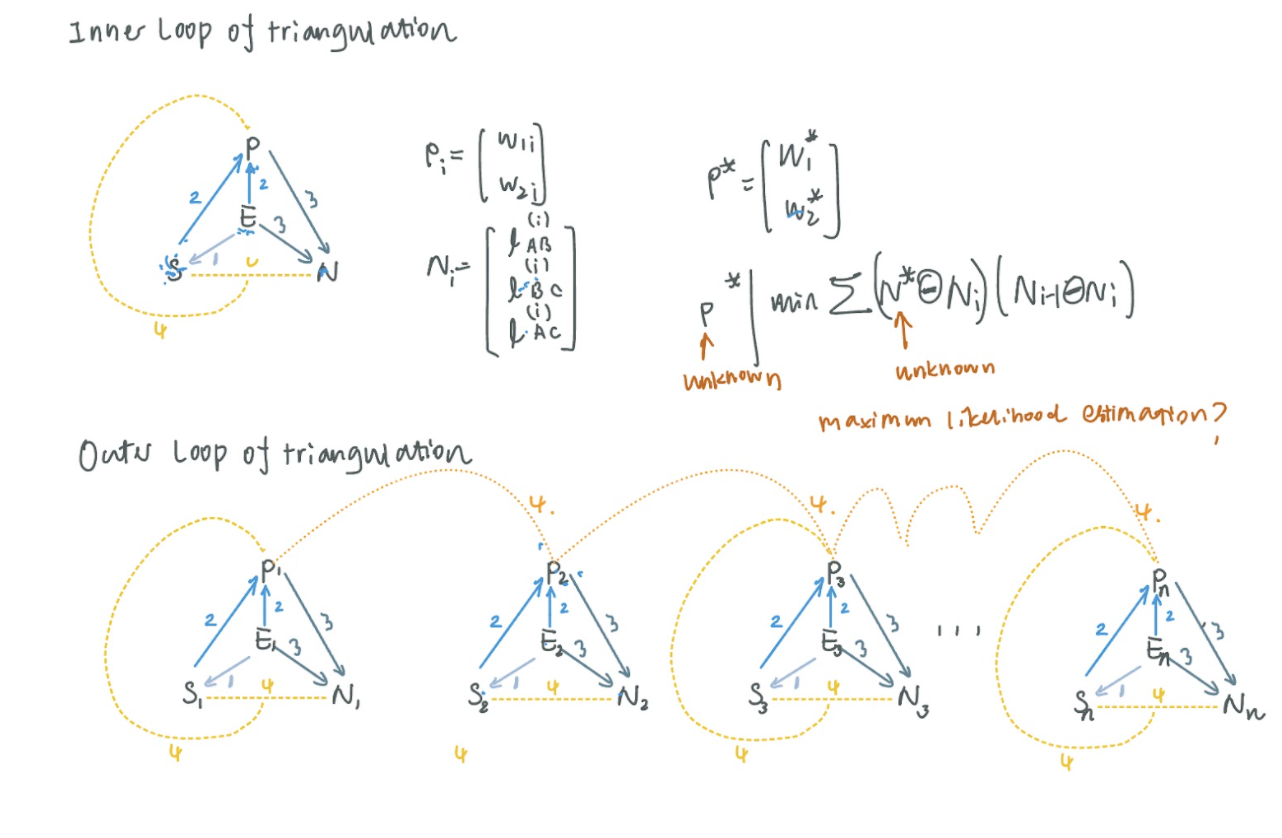 Inner Loop of triangulation
P
2
2
3
E
3
S
1
N
4
P_i = [ w_1i
w_2i ]
N_i = [ l_AB^(i)
l_BC^(i)
l_AC^(i) ]
P* = [ W_1*
W_2* ]
P* | min Σ (N* ⊖ N_i) ( N_i-1 ⊖ N_i )
unknown
unknown
maximum likelihood estimation?
Outer Loop of triangulation
4.
4.
4.
P_1
2
2
3
E_1
3
S_1
1
4
N_1
4
P_2
2
2
3
E_2
3
S_2
1
4
N_2
4
P_3
2
2
3
E_3
3
S_3
1
4
N_3
4
...
P_n
2
2
3
E_n
3
S_n
1
4
N_n
4